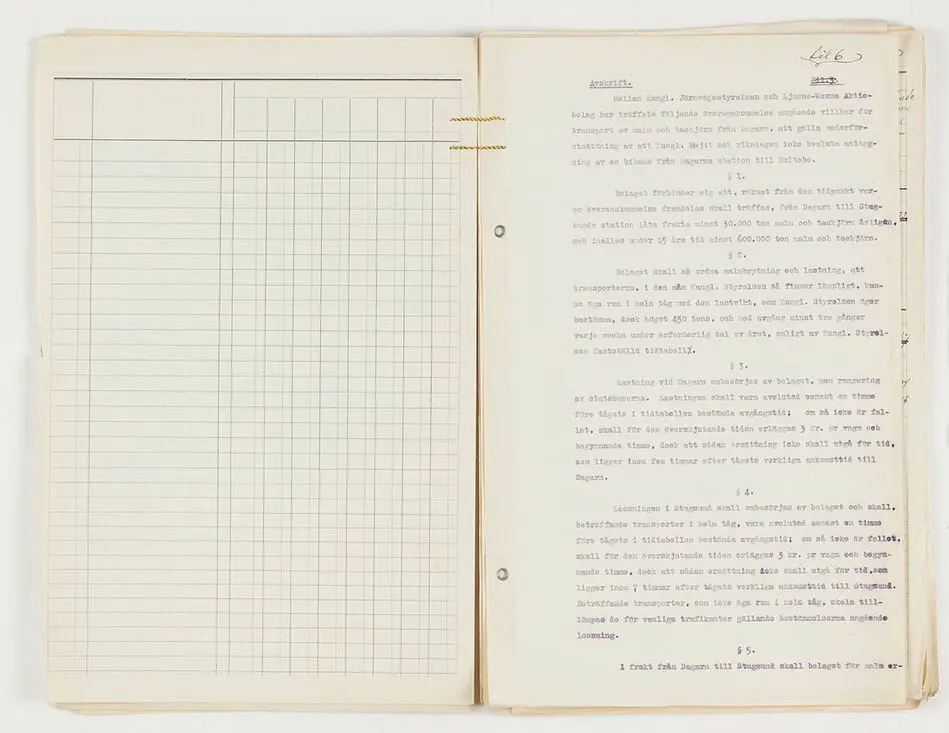 Bil 6
Avskrift.
Bil.3.
Mellan Kungl. Järnvägsstyrelsen och Ljusne-Woxna Aktie-
bolag har träffats följande överenskommelse angående villkor för
transport av malm och tackjärn från Dagarn, att gälla underför-
utsättning av att Kungl. Maj:t och riksdagen icke besluta anlägg-
ning av en bibana från Dagarns station till
§ 1.
Bolaget förbinder sig att, räknat från den tidpunkt var-
om överenskommelse framdeles skall träffas, från Dagarn till Stug-
sunds station låta frakta minst 30.000 ton malm och tackjärn årligen,
och inalles under 15 års tid minst 600.000 ton malm och tackjärn.
§ 2.
Bolaget skall så ordna malmbrytning och lastning, att
transporterna, i den mån Kungl. Styrelsen så finner lämpligt, kun-
na äga rum i hela tåg med den lastvikt, som Kungl. Styrelsen äger
bestämma, dock högst 450 tons, och med avgång minst tre gånger
varje vecka under erforderlig del av året, enligt av Kungl. Styrel-
sen fastställd tidtabell.
§ 3.
Lastning vid Dagarn ombesörjes av bolaget, men rangering
av statsbanorna. Lastningen skall vara avslutad senast en timme
före tågets i tidtabellen bestämda avgångstid; om så icke är fal-
let, skall för den överskjutande tiden erläggas 3 Kr. pr vagn och
begynnande timme, dock att sådan ersättning icke skall utgå för tid,
som ligger inom fem timmar efter tågets verkliga ankomsttid till
Dagarn.
§ 4.
Lossningen i Stugsund skall ombesörjas av bolaget och skall,
beträffande transporter i hela tåg, vara avslutad senast en timme
före tågets i tidtabellen bestämda avgångstid; om så icke är fallet,
skall för den överskjutande tiden erläggas 3 kr. pr vagn och begyn-
nande timme, dock att sådan ersättning icke skall utgå för tid, som
ligger inom 7 timmar efter tågets verkliga ankomsttid till Stugsund.
Beträffande transporter, som icke äga rum i hela tåg, skola till-
lämpas de för vanliga trafikanter gällande bestämmelserna angående
lossning.
§ 5.
I frakt från Dagarn till Stugsund skall bolaget för malm er-